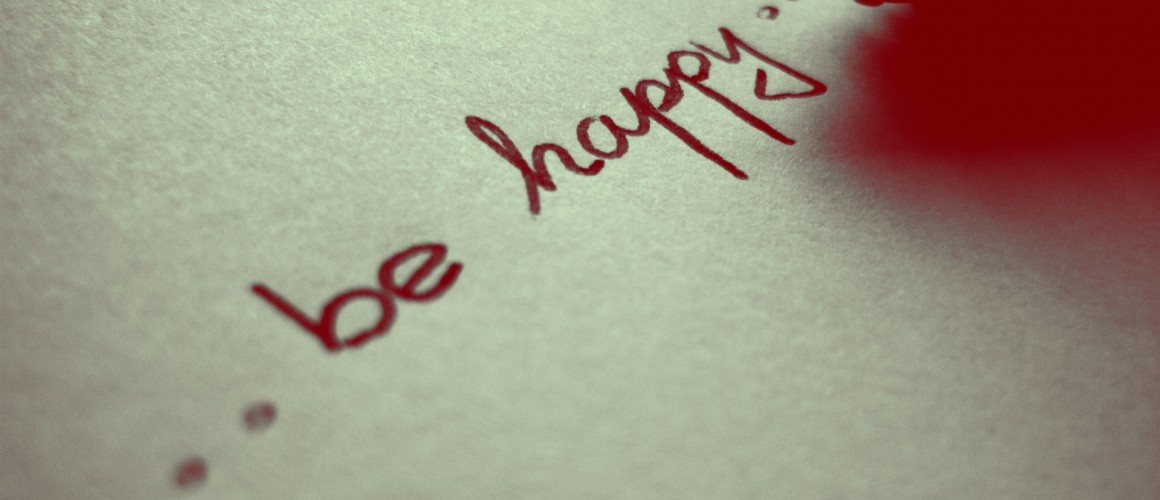 .. be happy..